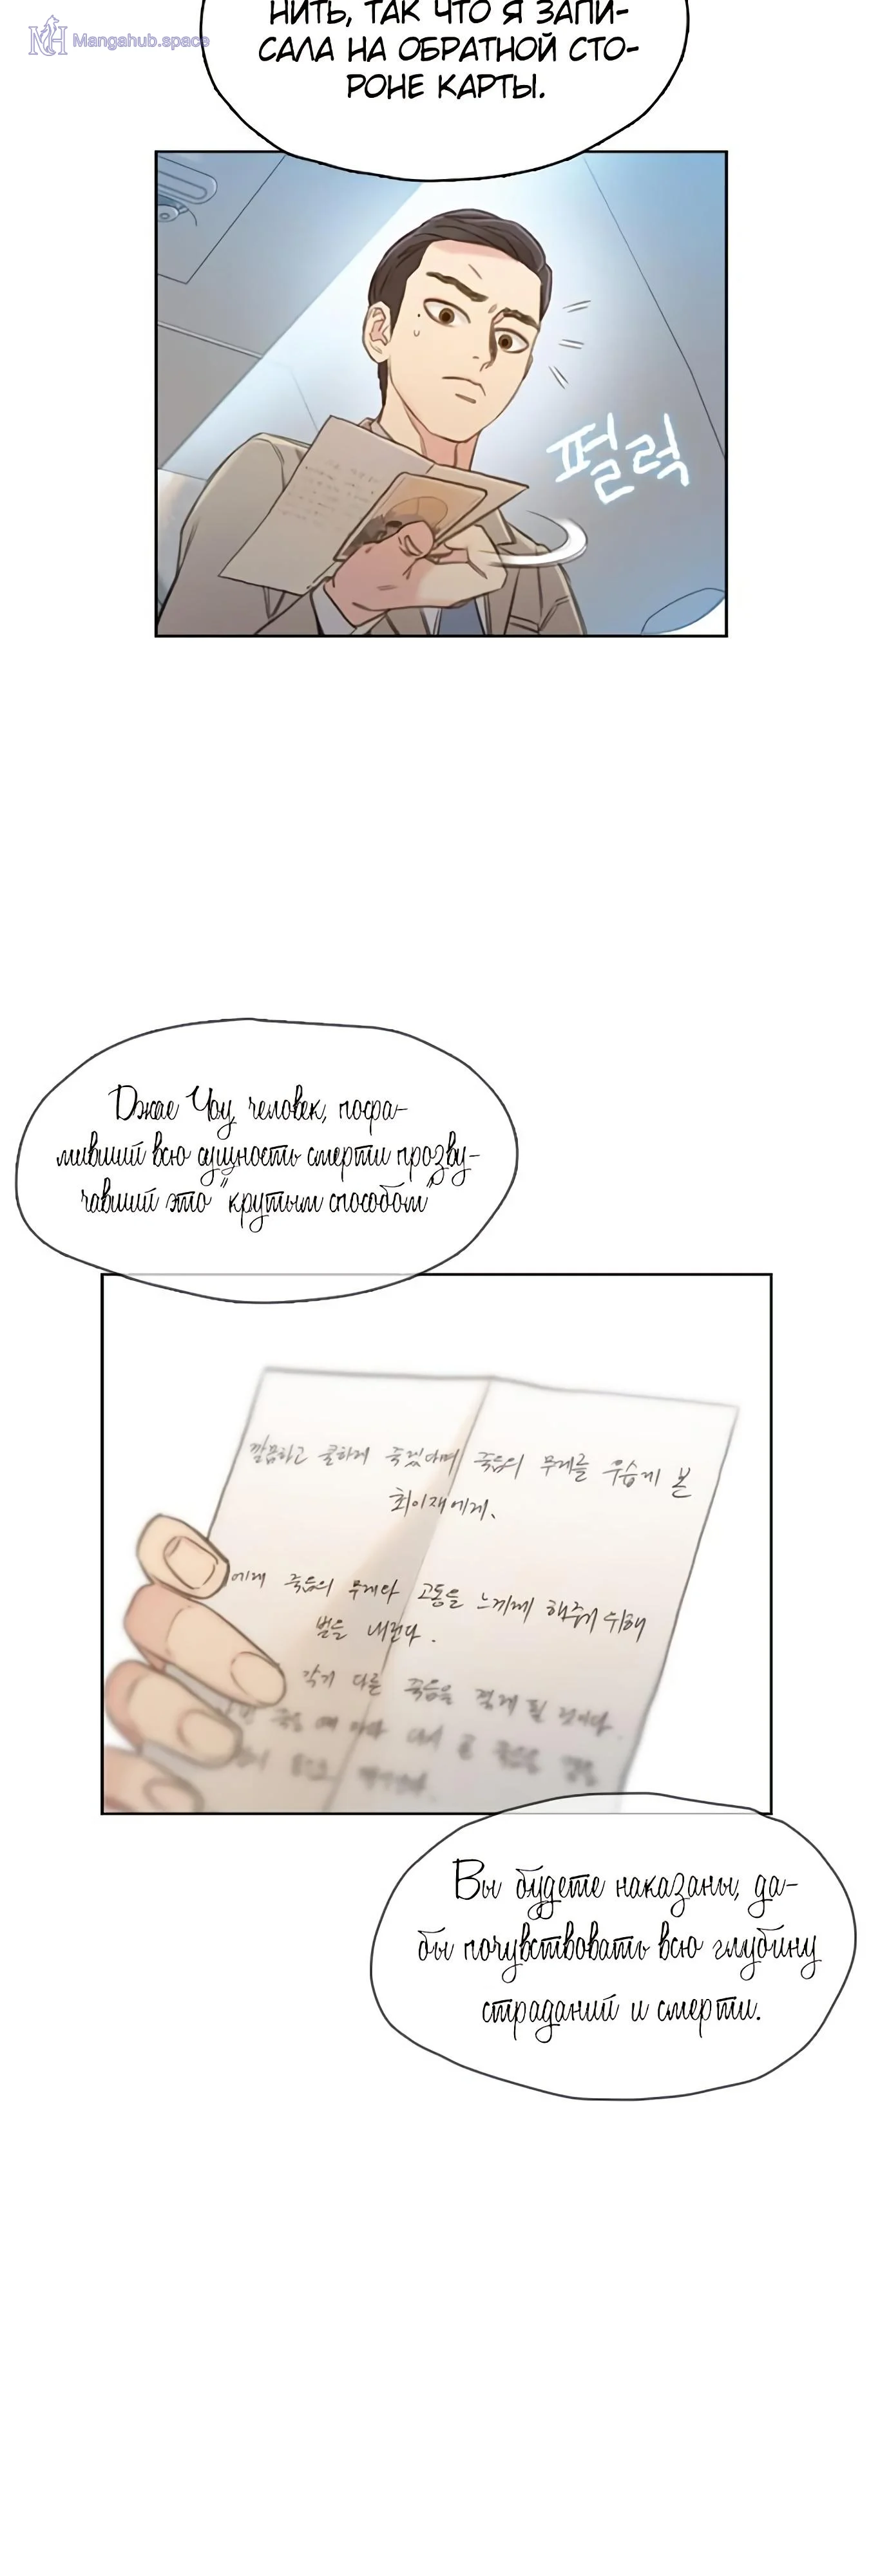 НИТЬ, ТАК ЧТО Я ЗАПИ-
САЛА НА ОБРАТНОЙ СТО-
РОНЕ КАРТЫ.
Mangahub.space
펄럭
Джае Чоу, человек, посра-
мивший всю сущность смерти прозву-
чавший это "крутым способом"
깔끔하고 쿨하게 죽겠다며 죽음의 무게를 우습게 본
최이재에게.
에게 죽음의 무게와 고통을 느끼게 해주기 위해
벌을 내린다.
각기 다른 죽음을 겪게 될 것이다.
죽을 때 마다
Вы будете наказаны, да-
бы почувствовать всю глубину
страданий и смерти.